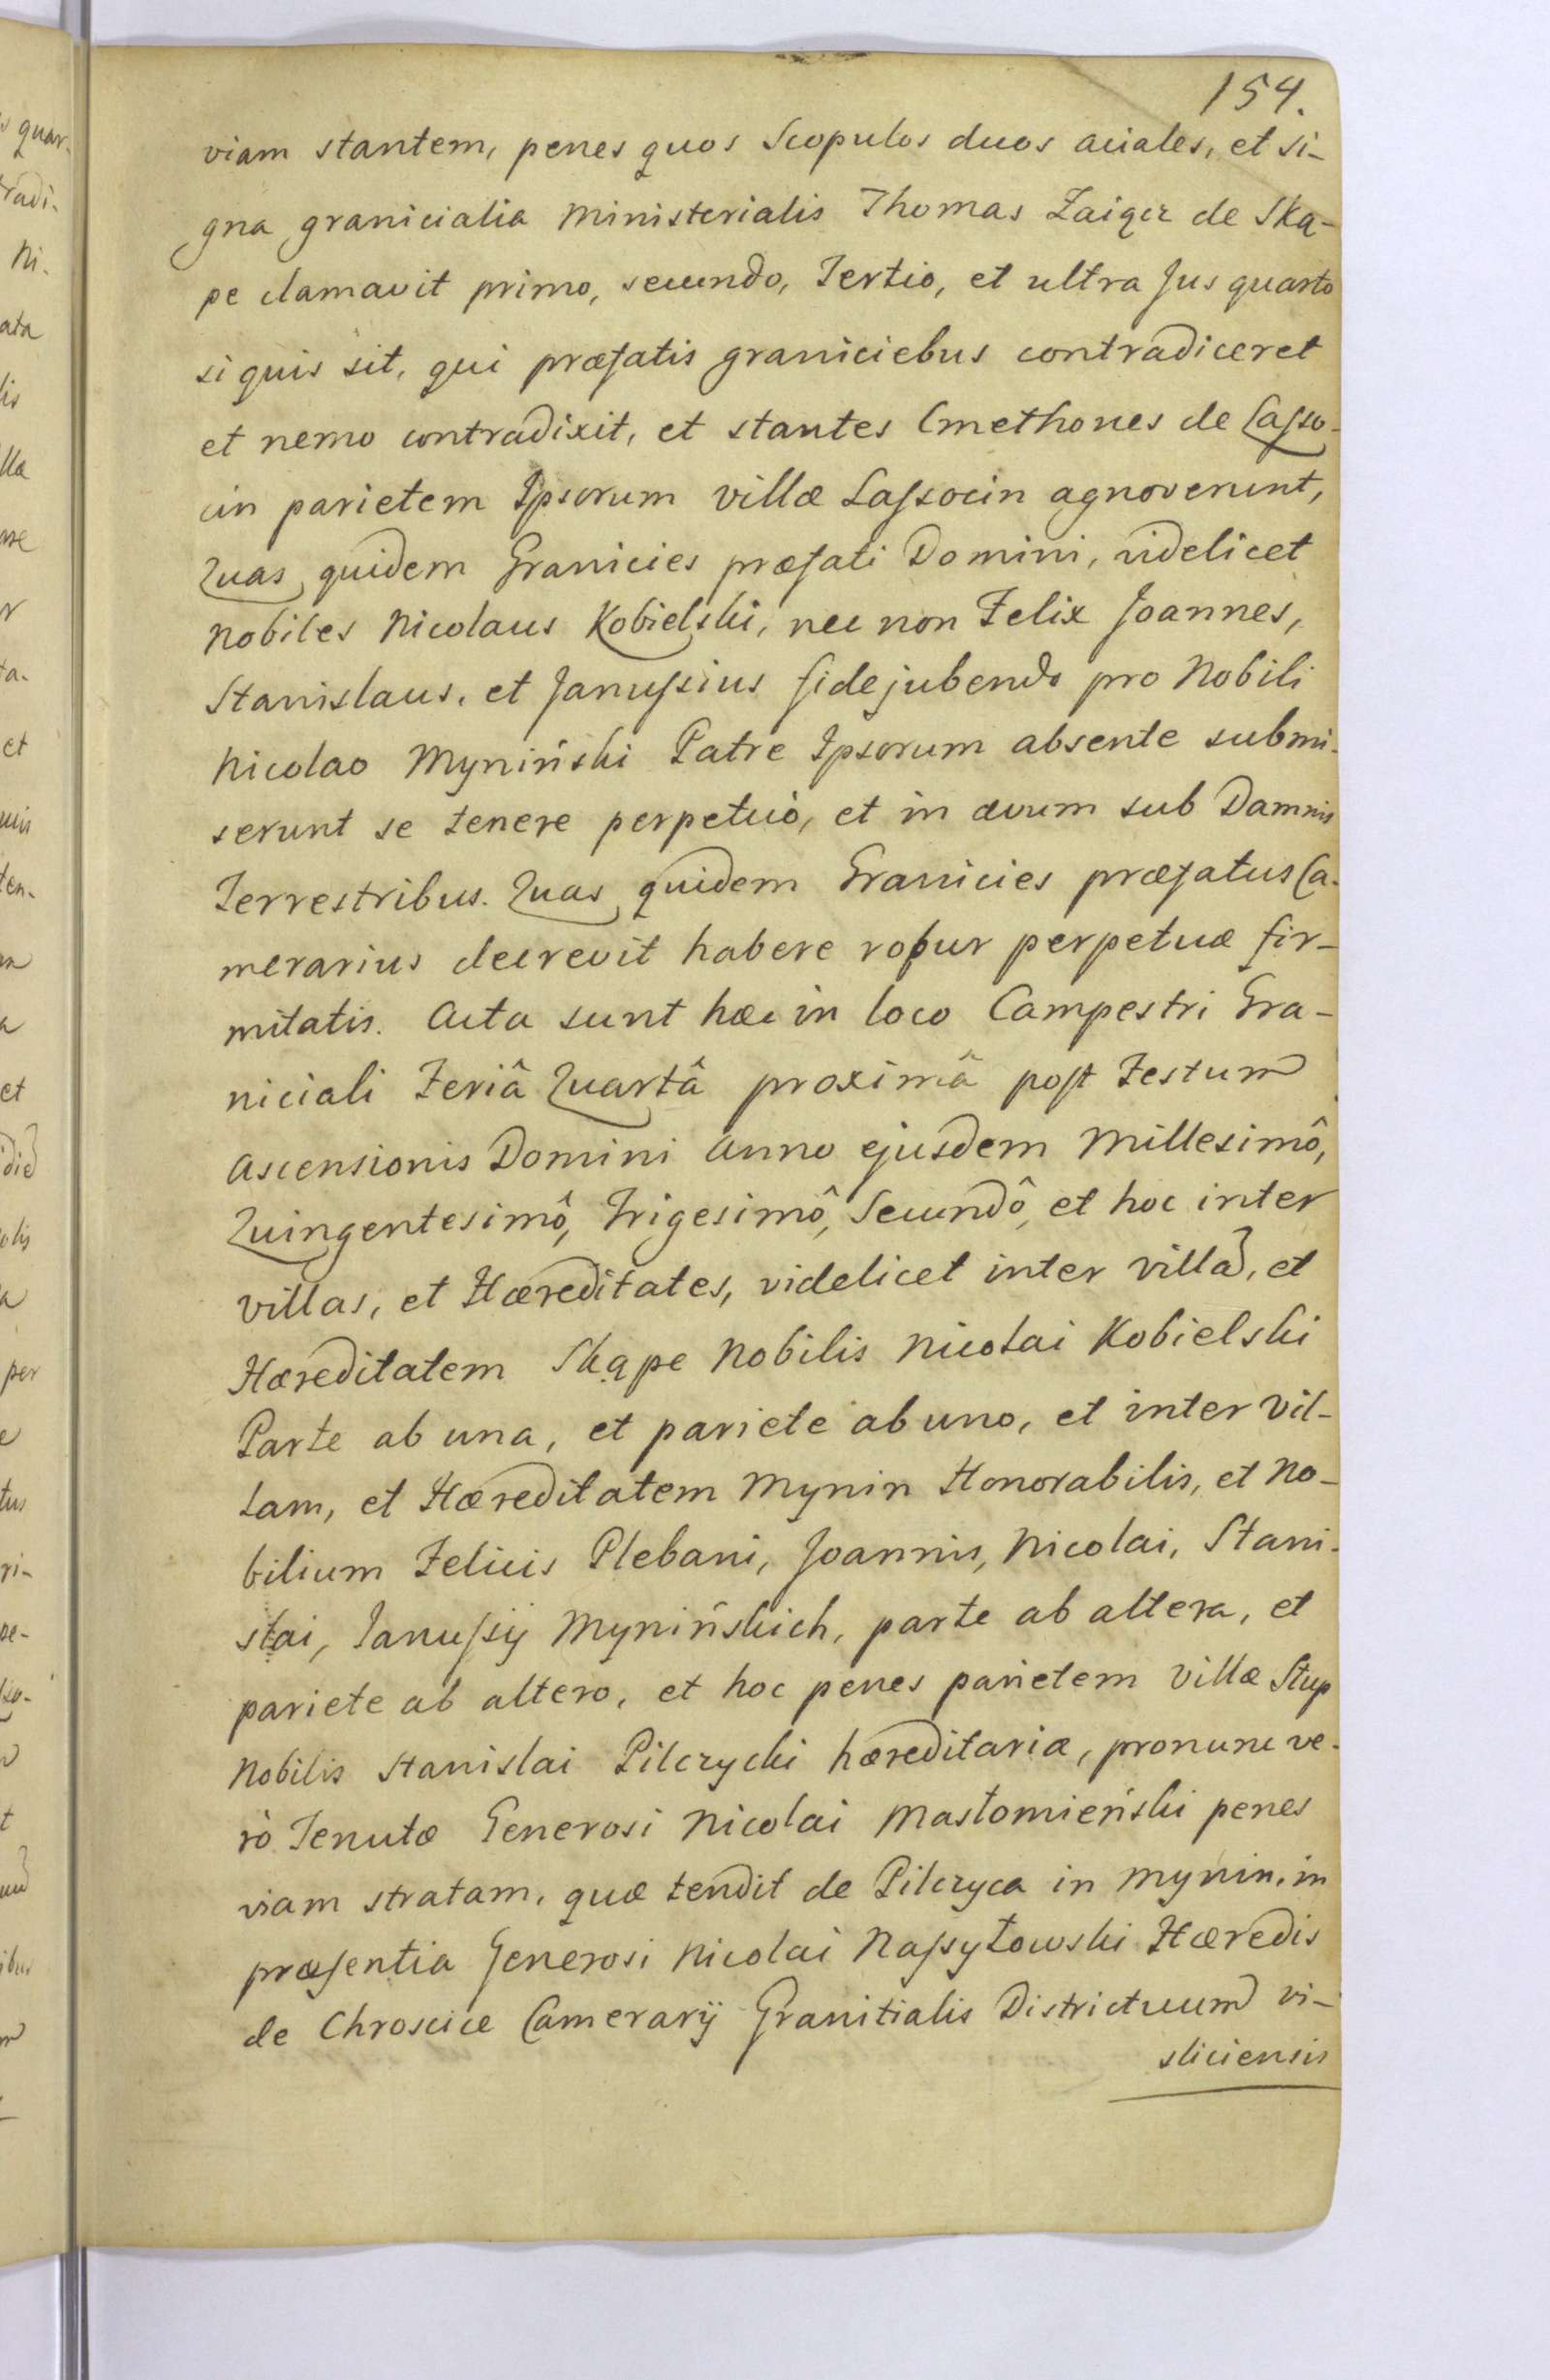 154.
viam stantem, penes quos Scopulos duos aciales, et si-
gna granicialia Ministerialis Thomas Zaiącz de Ską-
pe clamavit primo, secundo, Tertio, et ultra Jus quarto
si quis sit, qui præfatis graniciebus contradiceret
et nemo contradixit, et stantes Cmethones de Lasso-
cin parietem Ipsorum villæ Lassocin agnoverunt,
Quas quidem Granicies præfati Domini, videlicet
Nobiles Nicolaus Kobielski, nec non Felix Joannes,
Stanislaus, et Janussius fidejubendo pro Nobili
Nicolao Myniński Patre Ipsorum absente submi-
serunt se tenere perpetuò, et in ævum sub Damnis
Terrestribus. Quas quidem Granicies præfatus Ca-
merarius decrevit habere robur perpetuæ fir-
mitatis. Acta sunt hæc in loco Campestri Gra-
niciali Feriâ Quartâ proximâ post Festum
Ascensionis Domini Anno ejusdem Millesimô,
Quingentesimô, Trigesimô, Secundô, et hoc inter
villas, et Hæreditates, videlicet inter villam, et
Hæreditatem Skąpe Nobilis Nicolai Kobielski
Parte ab una, et pariete ab uno, et inter Vil-
lam, et Hæreditatem Mynin Honorabilis, et No-
bilium Felicis Plebani, Joannis, Nicolai, Stani-
slai, Janussij Mynińskich, parte ab altera, et
pariete ab altero, et hoc penes parietem Villæ Stup
Nobilis Stanislai Pilczycki hæreditariæ, pronunc ve-
rò Tenutæ Generosi Nicolai Masłomieński penes
viam stratam, quæ tendit de Pilczyca in Mynin, in
præsentia Generosi Nicolai Nassyłowski Hæredis
de Chroscice Camerarij Granitialis Districtuum Vi-
sliciensis